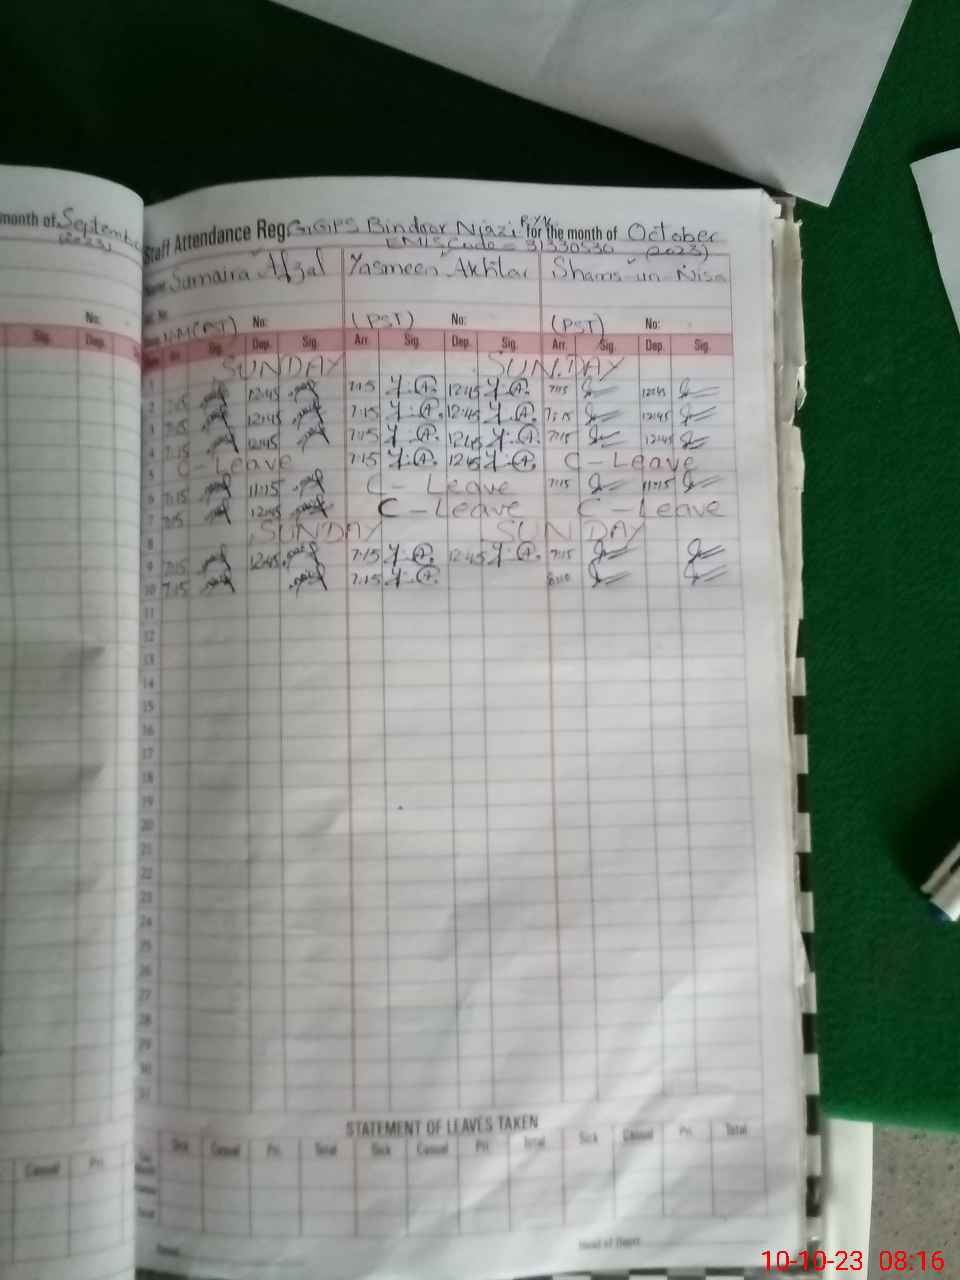 month of September
(2023)
Staff Attendance Reg. G.GPS Bindoor Niazi R.Y.K for the month of October
EMIS Code = 31330530 (2023)
Name Sumaira Afzal Yasmeen Akhtar Shams un Nisa
No: (PST) No: (PST) No:
Sig. Dep. Sig. Dep. Sig. Arr. Sig. Dep. Sig. Arr. Sig. Dep. Sig.
1 SUNDAY SUNDAY
2 7:15 12:45 7:15 Y.A. 12:45 Y.A. 7:15 12:45
3 7:15 12:45 7:15 Y.A. 12:45 Y.A. 7:15 12:45
4 7:15 12:45 7:15 Y.A. 12:45 Y.A. 7:15 12:45
5 C-Leave 7:15 Y.A. 12:45 Y.A. C-Leave
6 7:15 11:15 C-Leave 7:15 11:15
7 7:15 12:45 C-Leave C-Leave
8 SUNDAY SUNDAY
9 7:15 12:45 7:15 Y.A. 12:45 Y.A. 7:15
10 7:15 7:15 Y.A.
11
12
13
14
15
16
17
18
19
20
21
22
23
24
25
26
27
28
29
30
31
STATEMENT OF LEAVES TAKEN
Casual Pri. Sick Casual Pri. Total Sick Casual Pri. Total Sick Casual Pri. Total
Head of Deptt.
10-10-23 08:16